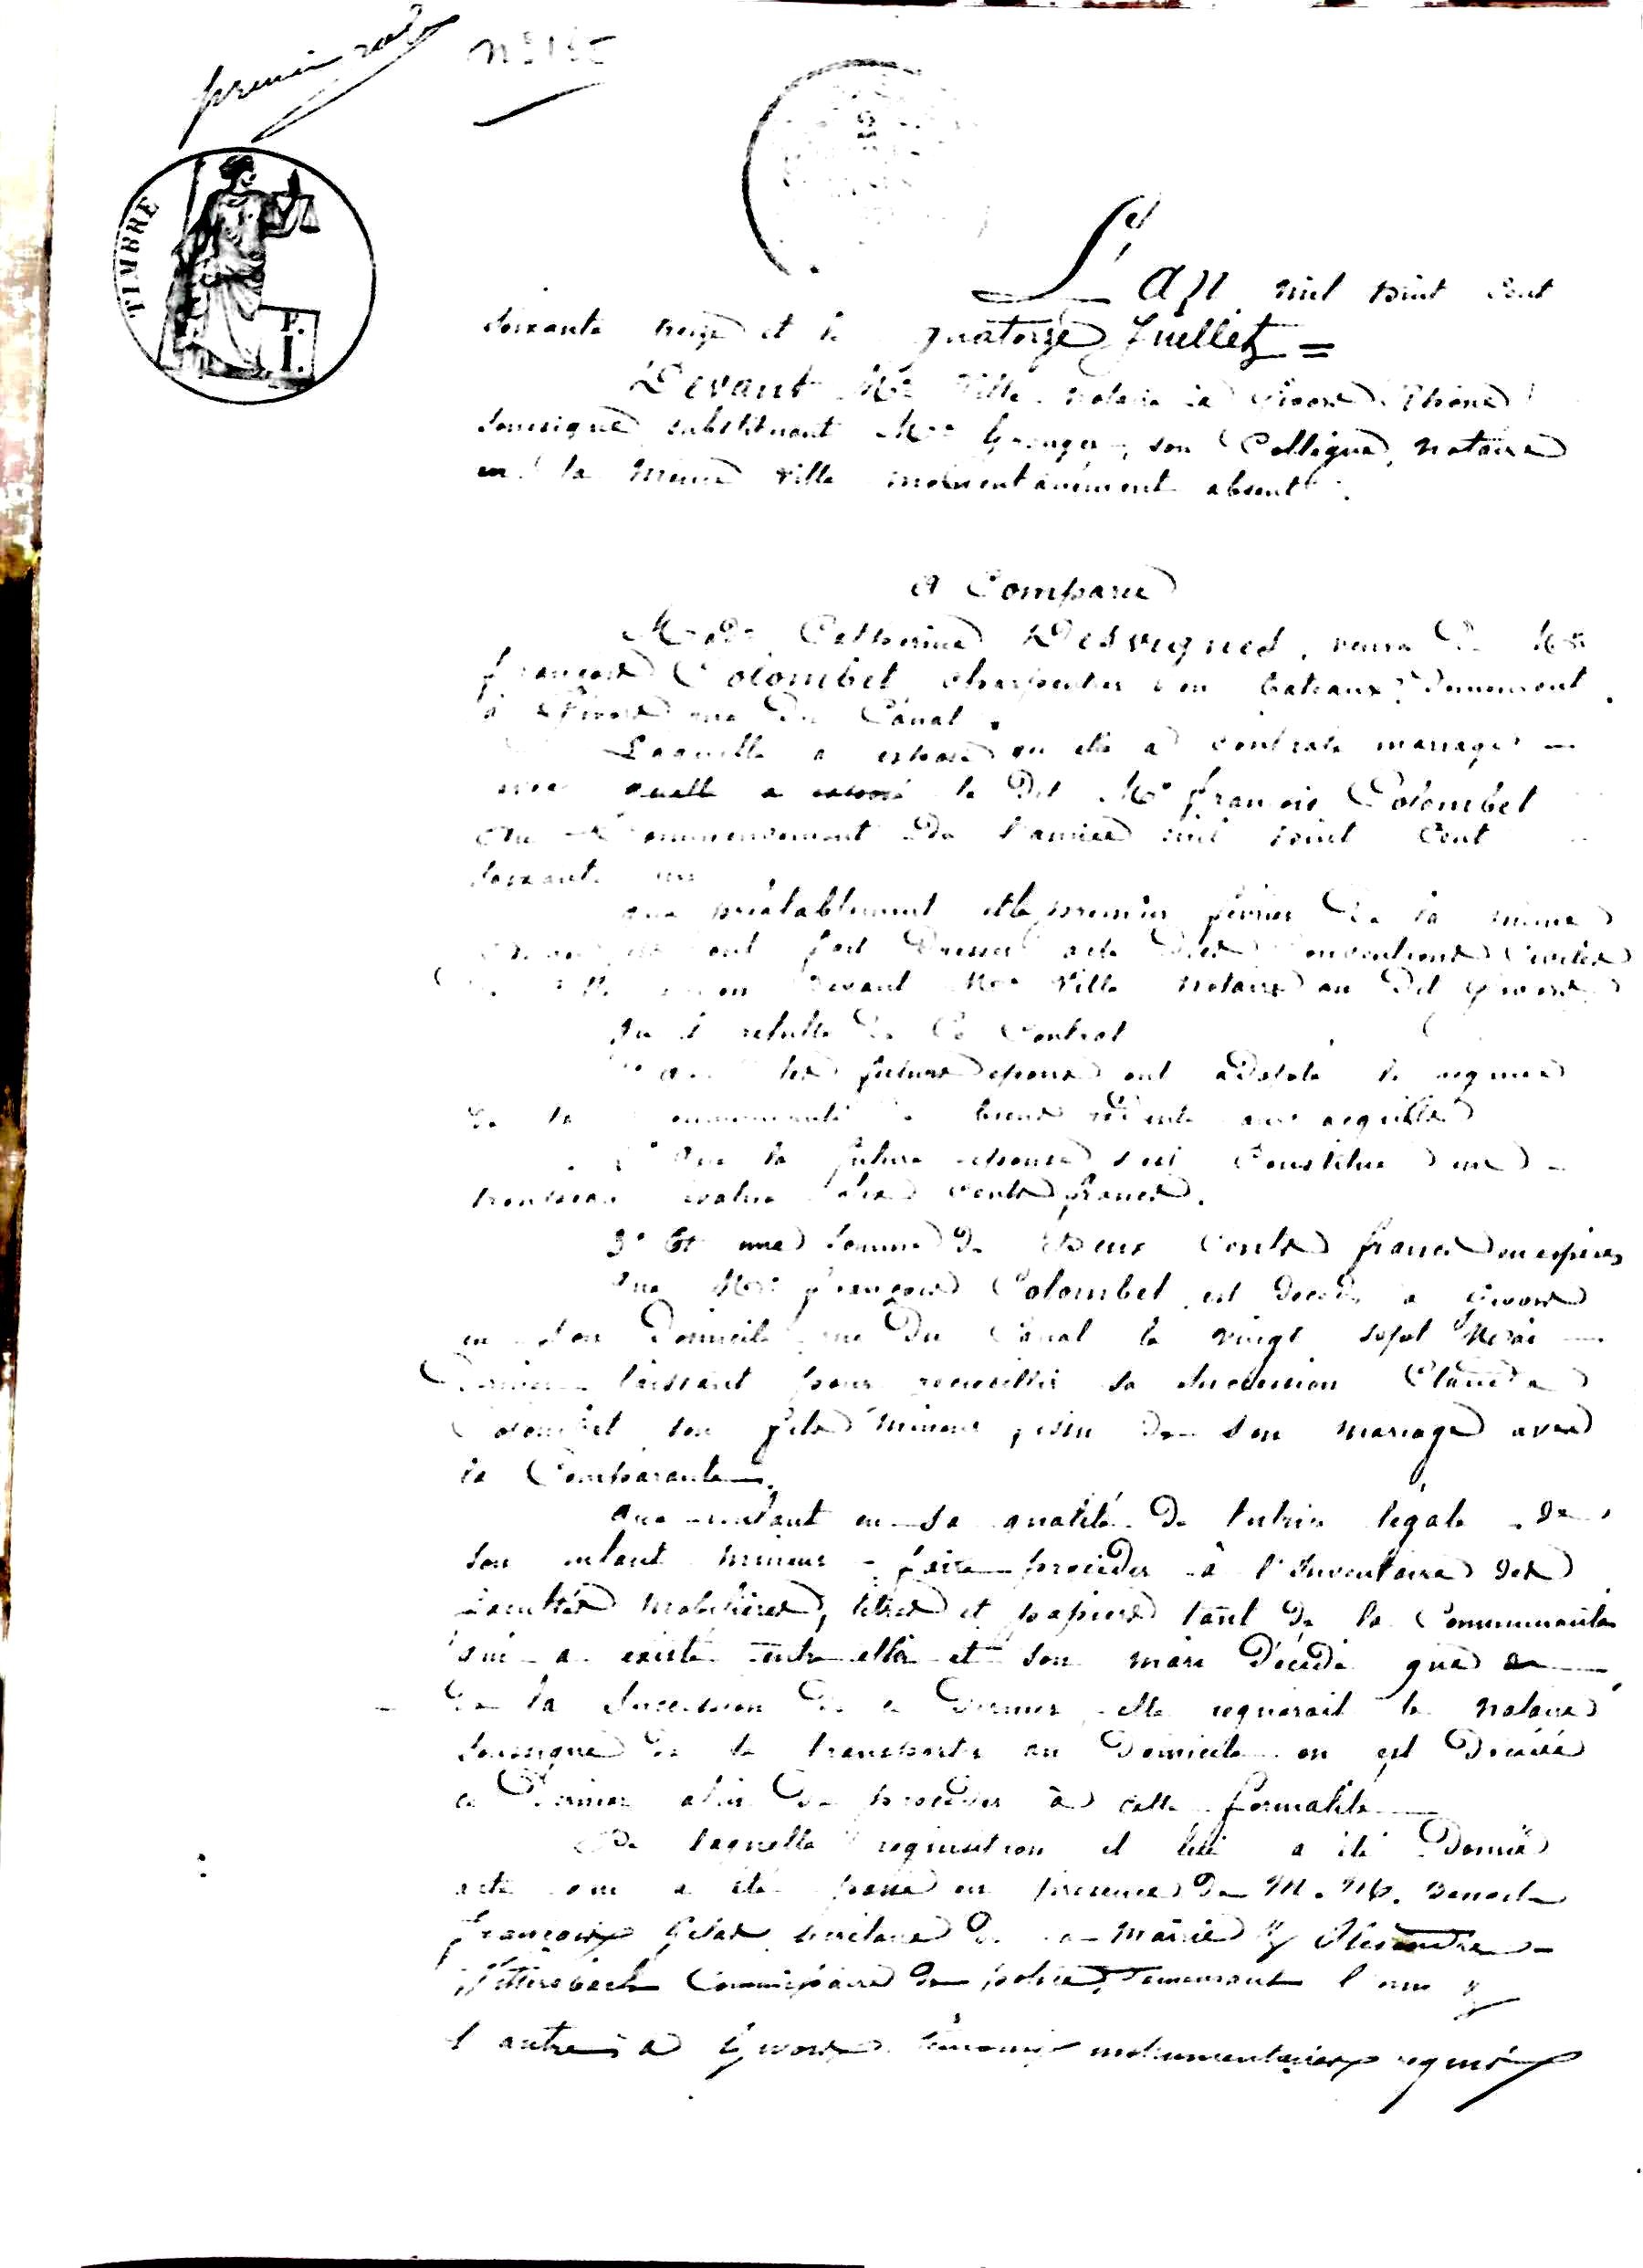 premier rôle
TIMBRE
L'An mil huit cent
soixante treize et le quatorze Juillet =
Devant Me Ville notaire à Givors (Rhône)
soussigné substituant Me son Collègue, notaire
en la même ville momentanément absent.
A Comparu
Made Catherine Desvignes, veuve de Mr
françois Colombet charpentier en bateaux, demeurant
à Givors rue du Canal.
Laquelle a exposé qu elle a contracté mariage
avec le dit Mr françois Colombet
au commencement de l'année mil huit cent
soixante
que préalablement et le premier février de la même
ont fait dresser acte des conventions civiles
devant Me Ville notaire au dit Givors
Qu il résulte de ce contrat
que les futurs époux ont adopté le régime
de la communauté de biens réduite aux acquêts
Que la future épouse s'est constitué un
trousseau évalué cents francs.
3° Et une somme de deux cents francs en espèces
Que Mr françois Colombet est décédé à Givors
en son domicile rue du Canal le vingt sept Mai
dernier laissant pour recueillir sa succession Claude
Colombet son fils mineur, issu de son mariage avec
la Comparante.
Que voulant en sa qualité de tutrice légale de
son enfant mineur faire procéder à l'inventaire des
facultés mobilières, titres et papiers tant de la Communauté
qui a existé entre elle et son mari décédé que
de la succession de ce dernier elle requerait le notaire
soussigné de se transporter au domicile ou est décédé
ce dernier afin de procéder à cette formalité
De laquelle réquisition il lui a été donné
acte qui a été passé en présence de M. M. Benoit
françois secrétaire de la mairie & Alexandre
Commissaire de police, demeurant l'un &
l'autre à Givors témoins instrumentaires requis